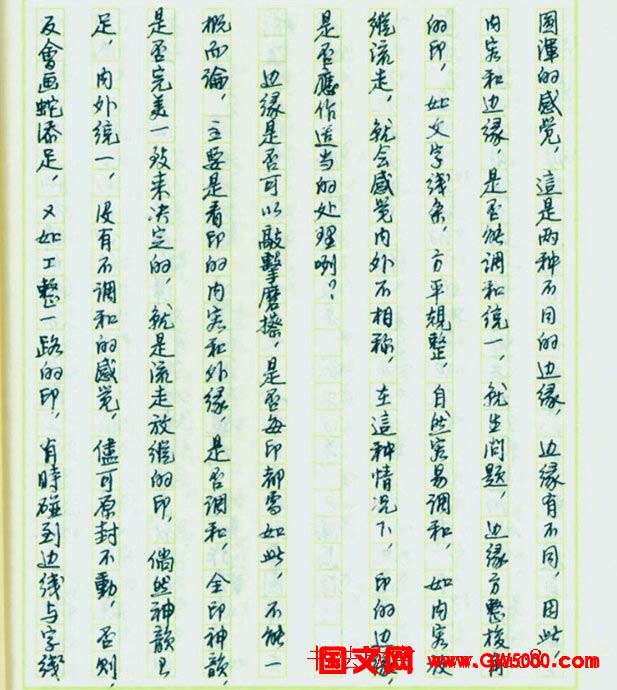 圆浑的感觉，這是两种不同的边缘，边缘有不同，因此，
内容和边缘，是否能调和统一，就生问题，边缘方整棱角
的印，如文字线条，方平规整，自然容易调和，如内容放
縱流走，就会感觉内外不相称，在這种情况下，印的边缘，
是否應作适当的处理咧？
边缘是否可以敲擊磨擦，是否每印都需如此，不能一
概而論，主要是看印的内容和外缘是否调和，全印神韻，
是否完美一致来决定的，就是流走放縱的印，倘然神韻已
足，内外统一，没有不调和的感觉，儘可原封不動，否则，
反會画蛇添足，又如工整一路的印，有時碰到边线与字线
国文网
www.GW5000.com